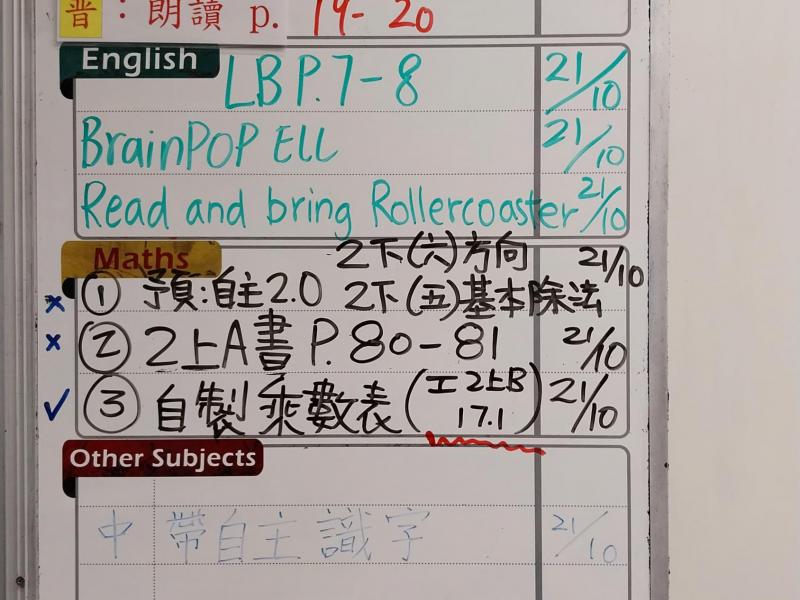 普：朗讀 p. 19-20
English
LB P.7-8 21/10
BrainPOP ELL 21/10
Read and bring Rollercoaster 21/10
Maths
2下(六)方向 21/10
① 預:自主2.0 2下(五)基本除法
② 2上A書 P.80-81 21/10
③ 自製乘數表(工2上B 17.1) 21/10
Other Subjects
中 帶自主識字 21/10